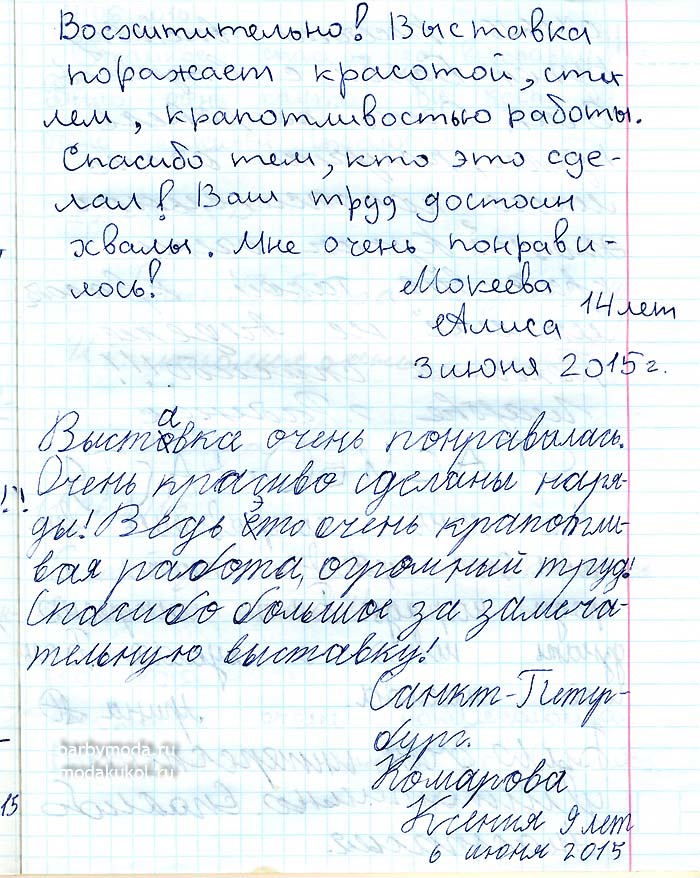 Восхитительно! Выставка
поражает красотой, сти
лем, крапотливостью работы.
Спасибо тем, кто это сде-
лал! Ваш труд достоин
хвалы. Мне очень понрави-
лось!
Мокеева
14 лет
Алиса
3 июня 2015 г.
Выставка очень понравилась.
Очень красиво сделаны наря-
ды! Ведь это очень крапотли-
вая работа, огромный труд!
Спасибо большое за замеча-
тельную выставку!
Санкт-Петер-
бург.
barbymoda.ru
modakukol.ru
Комарова
15
Ксения 9 лет
6 июня 2015